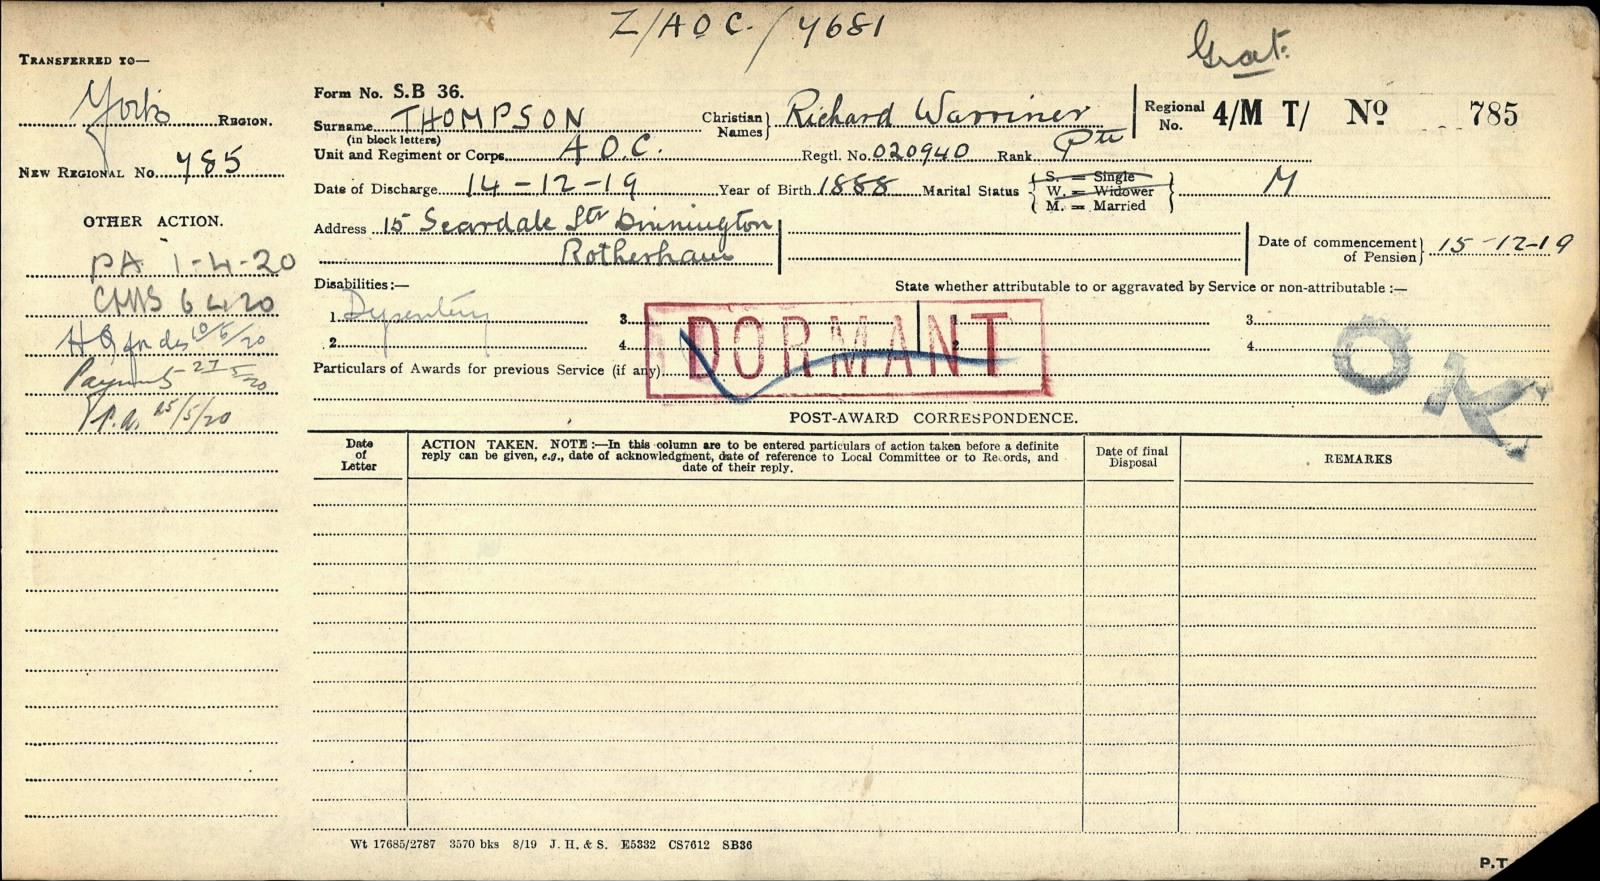 Z/AOC./4681
Grat:
TRANSFERRED TO—
Yorks REGION.
NEW REGIONAL No. 785
OTHER ACTION.
PA 1-4-20
CMS 6 4 20
HQ for des 10/5/20
Payments 27 5/20
P.A. 25/5/20
Form No. S.B 36.
Surname THOMPSON Christian Names} Richard Warriner Regional No. 4/M T/ No 785
(in block letters)
Unit and Regiment or Corps A O.C. Regtl. No. 020940 Rank Pte
Date of Discharge 14-12-19 Year of Birth 1888 Marital Status { S. = Single W. = Widower M. = Married } M
Address 15 Scardale St Dinnington
Rotherham
Date of commencement of Pension} 15-12-19
Disabilities:— State whether attributable to or aggravated by Service or non-attributable :—
1. Dysentery 3. 1. 3.
2. 4. 2. 4.
DORMANT
OK
Particulars of Awards for previous Service (if any)
POST-AWARD CORRESPONDENCE.
Date of Letter
ACTION TAKEN. NOTE :—In this column are to be entered particulars of action taken before a definite
reply can be given, e.g., date of acknowledgment, date of reference to Local Committee or to Records, and
date of their reply.
Date of final Disposal
REMARKS
Wt 17685/2787 3570 bks 8/19 J. H. & S. E5332 CS7612 SB36
P.T.